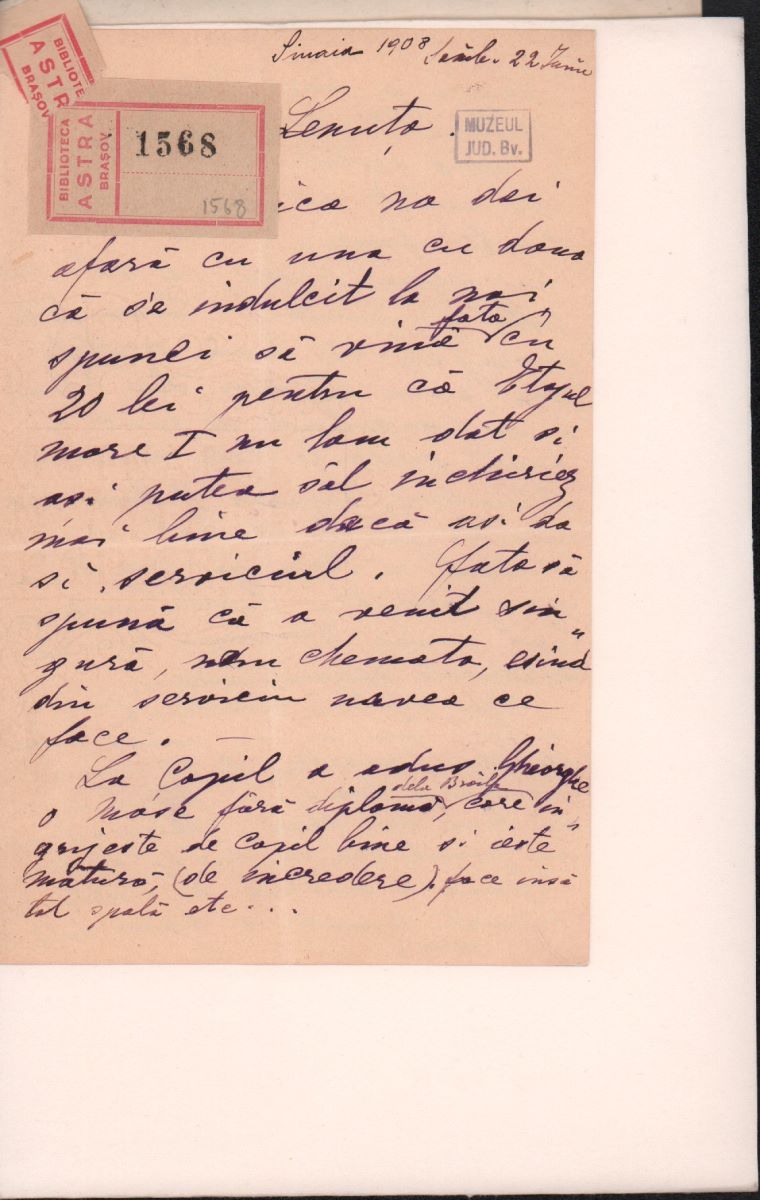 BIBLIOTE
ASTR
BRAȘOV
Sinaia 1908 Sâmb. 22 Iunie
BIBLIOTECA
ASTRA
BRAȘOV
1568
1568
Lenuța.
MUZEUL
JUD. Bv.
ica na dai
afară cu una cu doua
că s'a indulcit la noi
spunei să vină fata cu
20 lei pentru că Etajul
mare I nu lam dat si
asi putea săl inchiriez
mai bine dacă asi da
si serviciul. fata să
spună că a venit sin
gură, nu chemata, esind"
din serviciu navea ce
face.
La Copil a adus Gheorghe
o moașe fără diploma, dela Brăila care in
grijeste de Copil bine si este"
matură, (de incredere). face insă
tot spală etc...